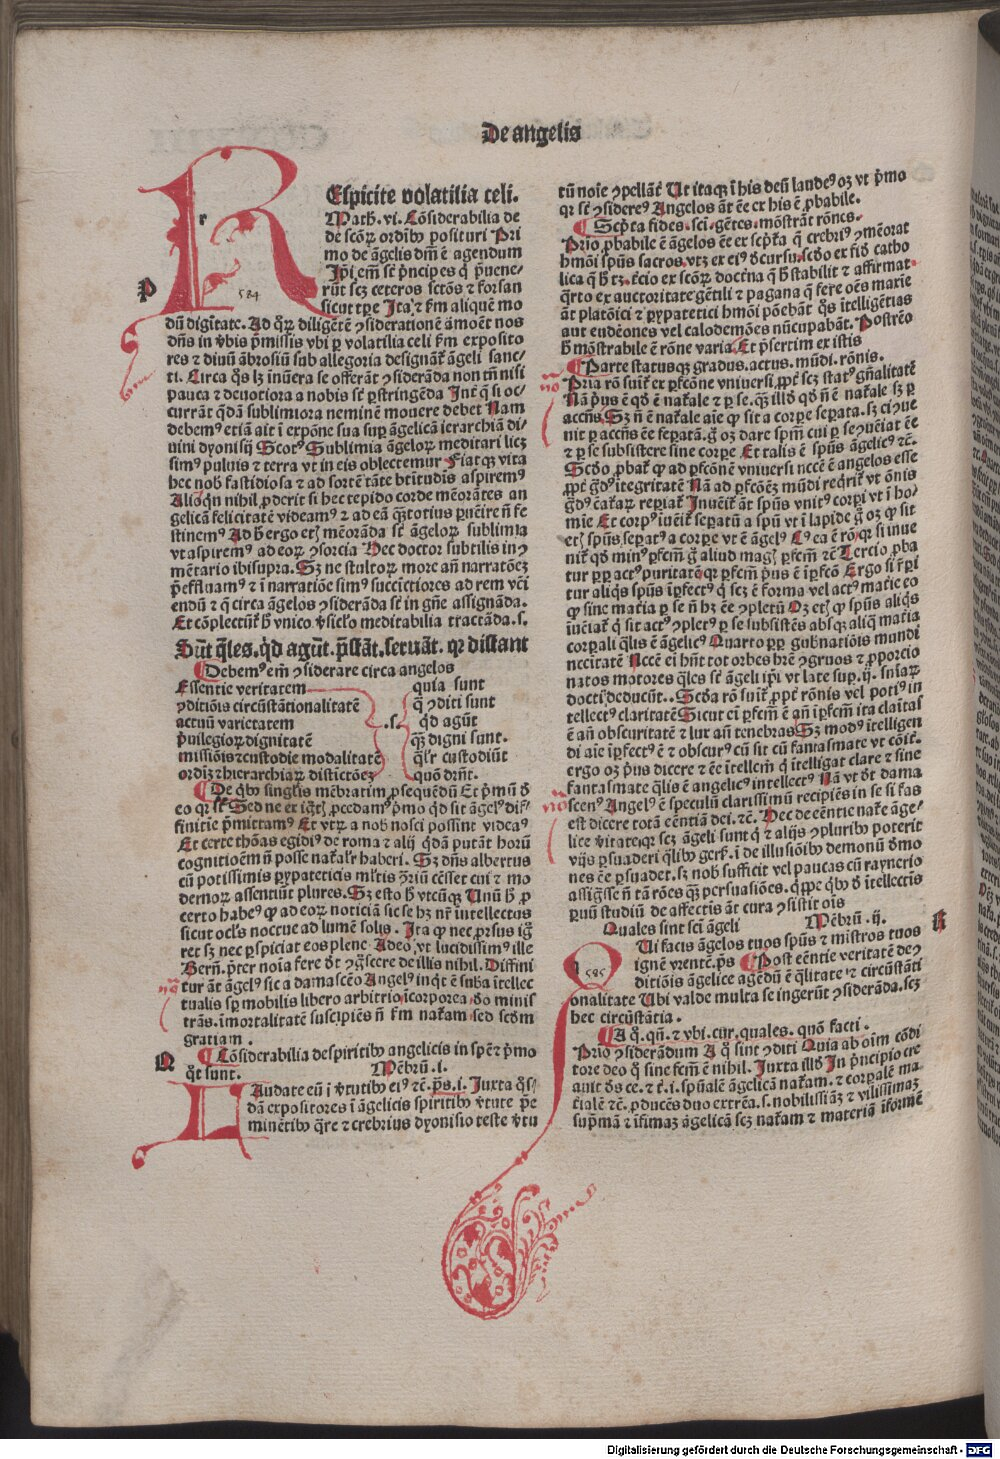 De angelis
REspicite volatilia celi.
Math. vi. Cōsiderabilia de
de scōrꝝ ordinibꝰ posituri Pri
mo de āgelis dm̄ ē agendum
Ip̄i em̄ sc̄ p̄ncipes q̄ p̄uene-
rūt scꝫ ceteros sctōs ⁊ forsan
sicut tꝑe Ita ⁊ fm aliquē mo
584
P
dū dignitatē. Ad q̄ꝝ diligētē ꝯsiderationē āmoēt nos
dn̄s in v̄bis p̄missis vbi ꝑ volatilia celi fm exposito
res ⁊ diuū ābrosiū sub allegoria designāt̄ āgeli sanc-
ti. Circa q̄s lꝫ inūera se offerāt ꝯsiderāda non tn̄ nisi
pauca ⁊ deuotiora a nobis sc̄ ꝑstringēda Int̄ q̄ si oc-
currāt qdā sublimiora neminē mouere debet Nam
debemꝰ etiā ait i expōne sua suꝑ āgelicā ierarchiā di-
uini dyonisij Scotꝰ Sublimia āgeloꝝ meditari licꝫ
simꝰ puluis ⁊ terra vt in eis oblectemur Fiat qꝫ vita
hec nob̄ fastidiosa ⁊ ad sortē tāte btitudis aspiremꝰ
Alioqn nihil ꝓderit si hec tepido corde memorātes an
gelicā felicitatē videamꝰ ⁊ ad eā qꝫtotius ꝑuēire n̄ fe
stinemꝰ Ad h̄ ergo etꝫ memorāda sc̄ āgeloꝝ sublimia
vt aspiremꝰ ad eoꝝ ꝯsorcia Hec doctor subtilis in ꝯ
mētario ibi supra. Sꝫ ne stultoꝝ more an̄ narratōeꝫ
p̄effluamꝰ ⁊ i narratiōe simꝰ succictiores ad rem vēi
endū ⁊ q̄ circa āgelos ꝯsiderāda sc̄ in gn̄e assignāda.
Et cōplectūt̄ h̄ vnico v̄siclo meditabilia tractāda. s.
Sūt q̄les. qd agūt. p̄stāt. seruāt. qr distant
Debemꝰ em̄ ꝯsiderare circa angelos
Essentie veritatem quia sunt
ꝯditiōis circūstātionalitatē q̄ ꝯditi sunt
actuū varietatem .s. qd agūt
p̄uilegioꝝ dignitatē qꝫ digni sunt.
missiōis ⁊ custodie modalitatē q̄lr custodiūt
ordinū ⁊ hierarchiaꝝ distictōeꝫ quo drn̄t.
De qbꝰ singlis mēbratim ꝓsequēdū Et p̄mū d̄
eo qr st̄ Sed ne ex igtꝫ ꝓcedamꝰ p̄mo qd sit āgelꝰ dif-
finitie p̄mittamꝰ Et vtꝝ a nob̄ nosci possint videaꝰ
Et certe thōas egidiꝰ de roma ⁊ alij qdā putāt horū
cognitioēm n̄ posse nakalr haberi. Sꝫ dn̄s albertus
cū potissimis ꝑypateticis mltis
demoꝝ assentiūt plures. Sꝫ esto h̄ vtcūqꝫ Unū h̄ ꝓ
certo habeꝰ ꝙ ad eoꝝ noticiā sic se hꝫ nr̄ intellectus
sicut oclꝰs noctue ad lumē solis. Ita ꝙ nec ꝓrsus ig
ret sꝫ nec ꝑspiciat eos plene Adeo vt lucidissimꝰ ille
Bern̄. p̄ter noīa fere d̄t ꝯgsecre de illis nihil. Diffini
tur āt āgelꝰ sic a damascēo Angelꝰ inqt ē suba ītellec
tualis sꝑ mobilis libero arbitrio īcorporea do minis
trās. īmortalitatē suscipiēs n̄ fm nakam sed scdm
gratiam.
N
Cōsiderabilia de spiritibꝰ angelicis in spē ⁊ p̄mo
qt sunt. Mēbrū .i.
LAudate eū i v̄tutibꝰ eiꝰ ⁊c. p̄s. i. Juxta qs-
dā expositores i āgelicis spiritibꝰ v̄tute p̄e
minētibꝰ q̄re ⁊ crebrius dyonisio teste v̄tu
tū noīe ꝯpellāt̄ Ut itaqꝫ i his deū laudeꝰ oꝫ vt p̄mo
qr sc̄ ꝯsideremꝰ Angelos āt ēe ex his ē ꝓbabile.
Scpta fides. sci. gētes. mōstrāt rōnes.
Prio ꝓbabile ē āgelos ēe ex scpta q̄ crebriꝰ ꝯmēorat
hmōi spūs sacros. vtꝫ ex eiꝰ dcursu. scdo ex fid catho
lica q̄ h̄ tꝫ. tcio ex scōꝝ doctna q̄ h̄ stabilit ⁊ affirmat
qrto ex auctoritate gētili ⁊ pagana q̄ fere oēs marie
āt platōici ⁊ ꝑypatetici hmōi pōebāt qs itelligētias
aut eudēones vel calodemōes nūcupabāt. Postrēo
h̄ mōstrabile ē rōne varia. Et p̄sertim ex istis
Parte statusqꝫ gradus. actus. mūdi. rōnis.
Pria rō suit̄ ex ꝑfcōne vniuersi ꝓpt scꝫ statꝰ gn̄alitatē
Nā p̄us ē qd ē nakale ⁊ ꝑ se.
accn̄s. Sꝫ n̄ ē nakale aīe ꝙ sit a corꝑe seꝑata. sꝫ ci ꝯue
nit ꝑ accn̄s ēe seꝑatā. g̊ oꝫ dare spm̄ cui ꝑ se ꝯueiat ēe
⁊ ꝑ se subsistere sine corꝑe Et talis ē spūs āgelicꝰ ⁊c.
Scdo ꝓbat̄ ꝙ ad ꝑfcōnē vniuersi nccē ē angelos esse
ꝓpt gdꝰ itegritatē Nā ad ꝑfcōeꝫ mūdi reqrit̄ vt ōnis
gdꝰ cakaꝝ reꝑiat̄ Inueit̄ āt spūs vnitꝰ corꝑi vt i ho-
mie Et corpꝰ iueit̄ seꝑatū a spū vt i lapide g̊ oꝫ ꝙ sit
etꝫ spūs seꝑatꝰ a corꝑe vt ē āgelꝰ Cꝰ ea ē rō qr si inue
nit̄ qd minꝰ ꝑfcm̄ g̊ aliud magꝫ ꝑfcm̄ ⁊c Tercio ꝓba
tur ꝓꝑ actꝰ puritatē qr ꝑfcm̄ p̄us ē iꝑfcō Ergo si ē rꝑi
tur aliqs spūs iꝑfectꝰ q scꝫ ē forma vel actꝰ matie eo
ꝙ sine matia ꝑ se n̄ hꝫ ēe ꝯpletū Oꝫ etꝫ ꝙ spūs aliqs
iueiat̄ q sit actꝰ ꝯpletꝰ ꝑ se subsistēs absqꝫ aliq̄ matia
corꝑali qlis ē āgelicꝰ Quarto ꝓꝑ gubnatiōis mundi
nccitatē Nccē ei hn̄t tot orbes hr̄e ꝯgruos ⁊ ꝓporcio
natos motores q̄les sc̄ āgeli iꝑi vt late suꝑ. ij. sniaꝝ
docti deducūt.. Scda rō suit̄ ꝓpt rōnis vel potiꝰ in
tellectꝰ claritatē Sicut ei ꝑfcm̄ ē an̄ iꝑfcm̄ ita claitas
ē an̄ obscuritatē ⁊ lux an̄ tenebras Sꝫ modꝰ itelligen
di aie iꝑfectꝰ ē ⁊ obscurꝰ cū sit cū fantasmate vt cōit̄.
ergo oꝫ p̄us dicere ⁊ ēe itellcm̄ q itelligat clare ⁊ sine
fantasmate qlis ē angelicꝰ intellectꝰ Nā vt d̄t dama
scenꝰ Angelꝰ ē speculū clarissimū recipiēs in se si fas
est dicere totā eēntiā dei. ⁊c. Hec de eēntie nake āge-
lice v̄itate qr scꝫ āgeli sunt q̄ ⁊ alijs ꝯpluribꝰ poterit
vijs ꝑsuaderi
nes ēe ꝑsuadet. sꝫ nob̄ sufficit vel paucas cū raynerio
assigsse n̄ tā rōes qꝫ ꝑsuasiōes. qꝓpe qbꝰ d̄ itellectis
ꝑuū studiū de affectis āt cura ꝯsistit oīs
Quales sint sci āgeli Mēbrū .ij.
R
QUi facis āgelos tuos spūs ⁊ mistros tuos
ignē vrentē. p̄s Post eēntie veritatē de ꝯ
ditiōis āgelice agēdū ē qlitate ⁊ circūstāti
585
onalitate Ubi valde multa se ingerūt ꝯsiderāda. scꝫ
hec circūstātia.
A q̊. qn̄. ⁊ vbi. cur. quales. quō facti.
Prio ꝯsiderādum A q̊ sint ꝯditi Quia ab oīm cōdi
tore deo q̊ sine fcm̄ ē nihil. Juxta illd In p̄ncipio cre
auit ds ce. ⁊ t̄. i. spūalē āgelicā nakam. ⁊ corꝑalē ma
tialē ⁊c. ꝓducēs duo extrēa. s. nobilissiāꝫ ⁊ vilissimaꝫ
sup̄mā ⁊ ifimaꝫ āgelicā scꝫ nakam ⁊ materiā iformē
Digitalisierung gefördert durch die Deutsche Forschungsgemeinschaft - DFG